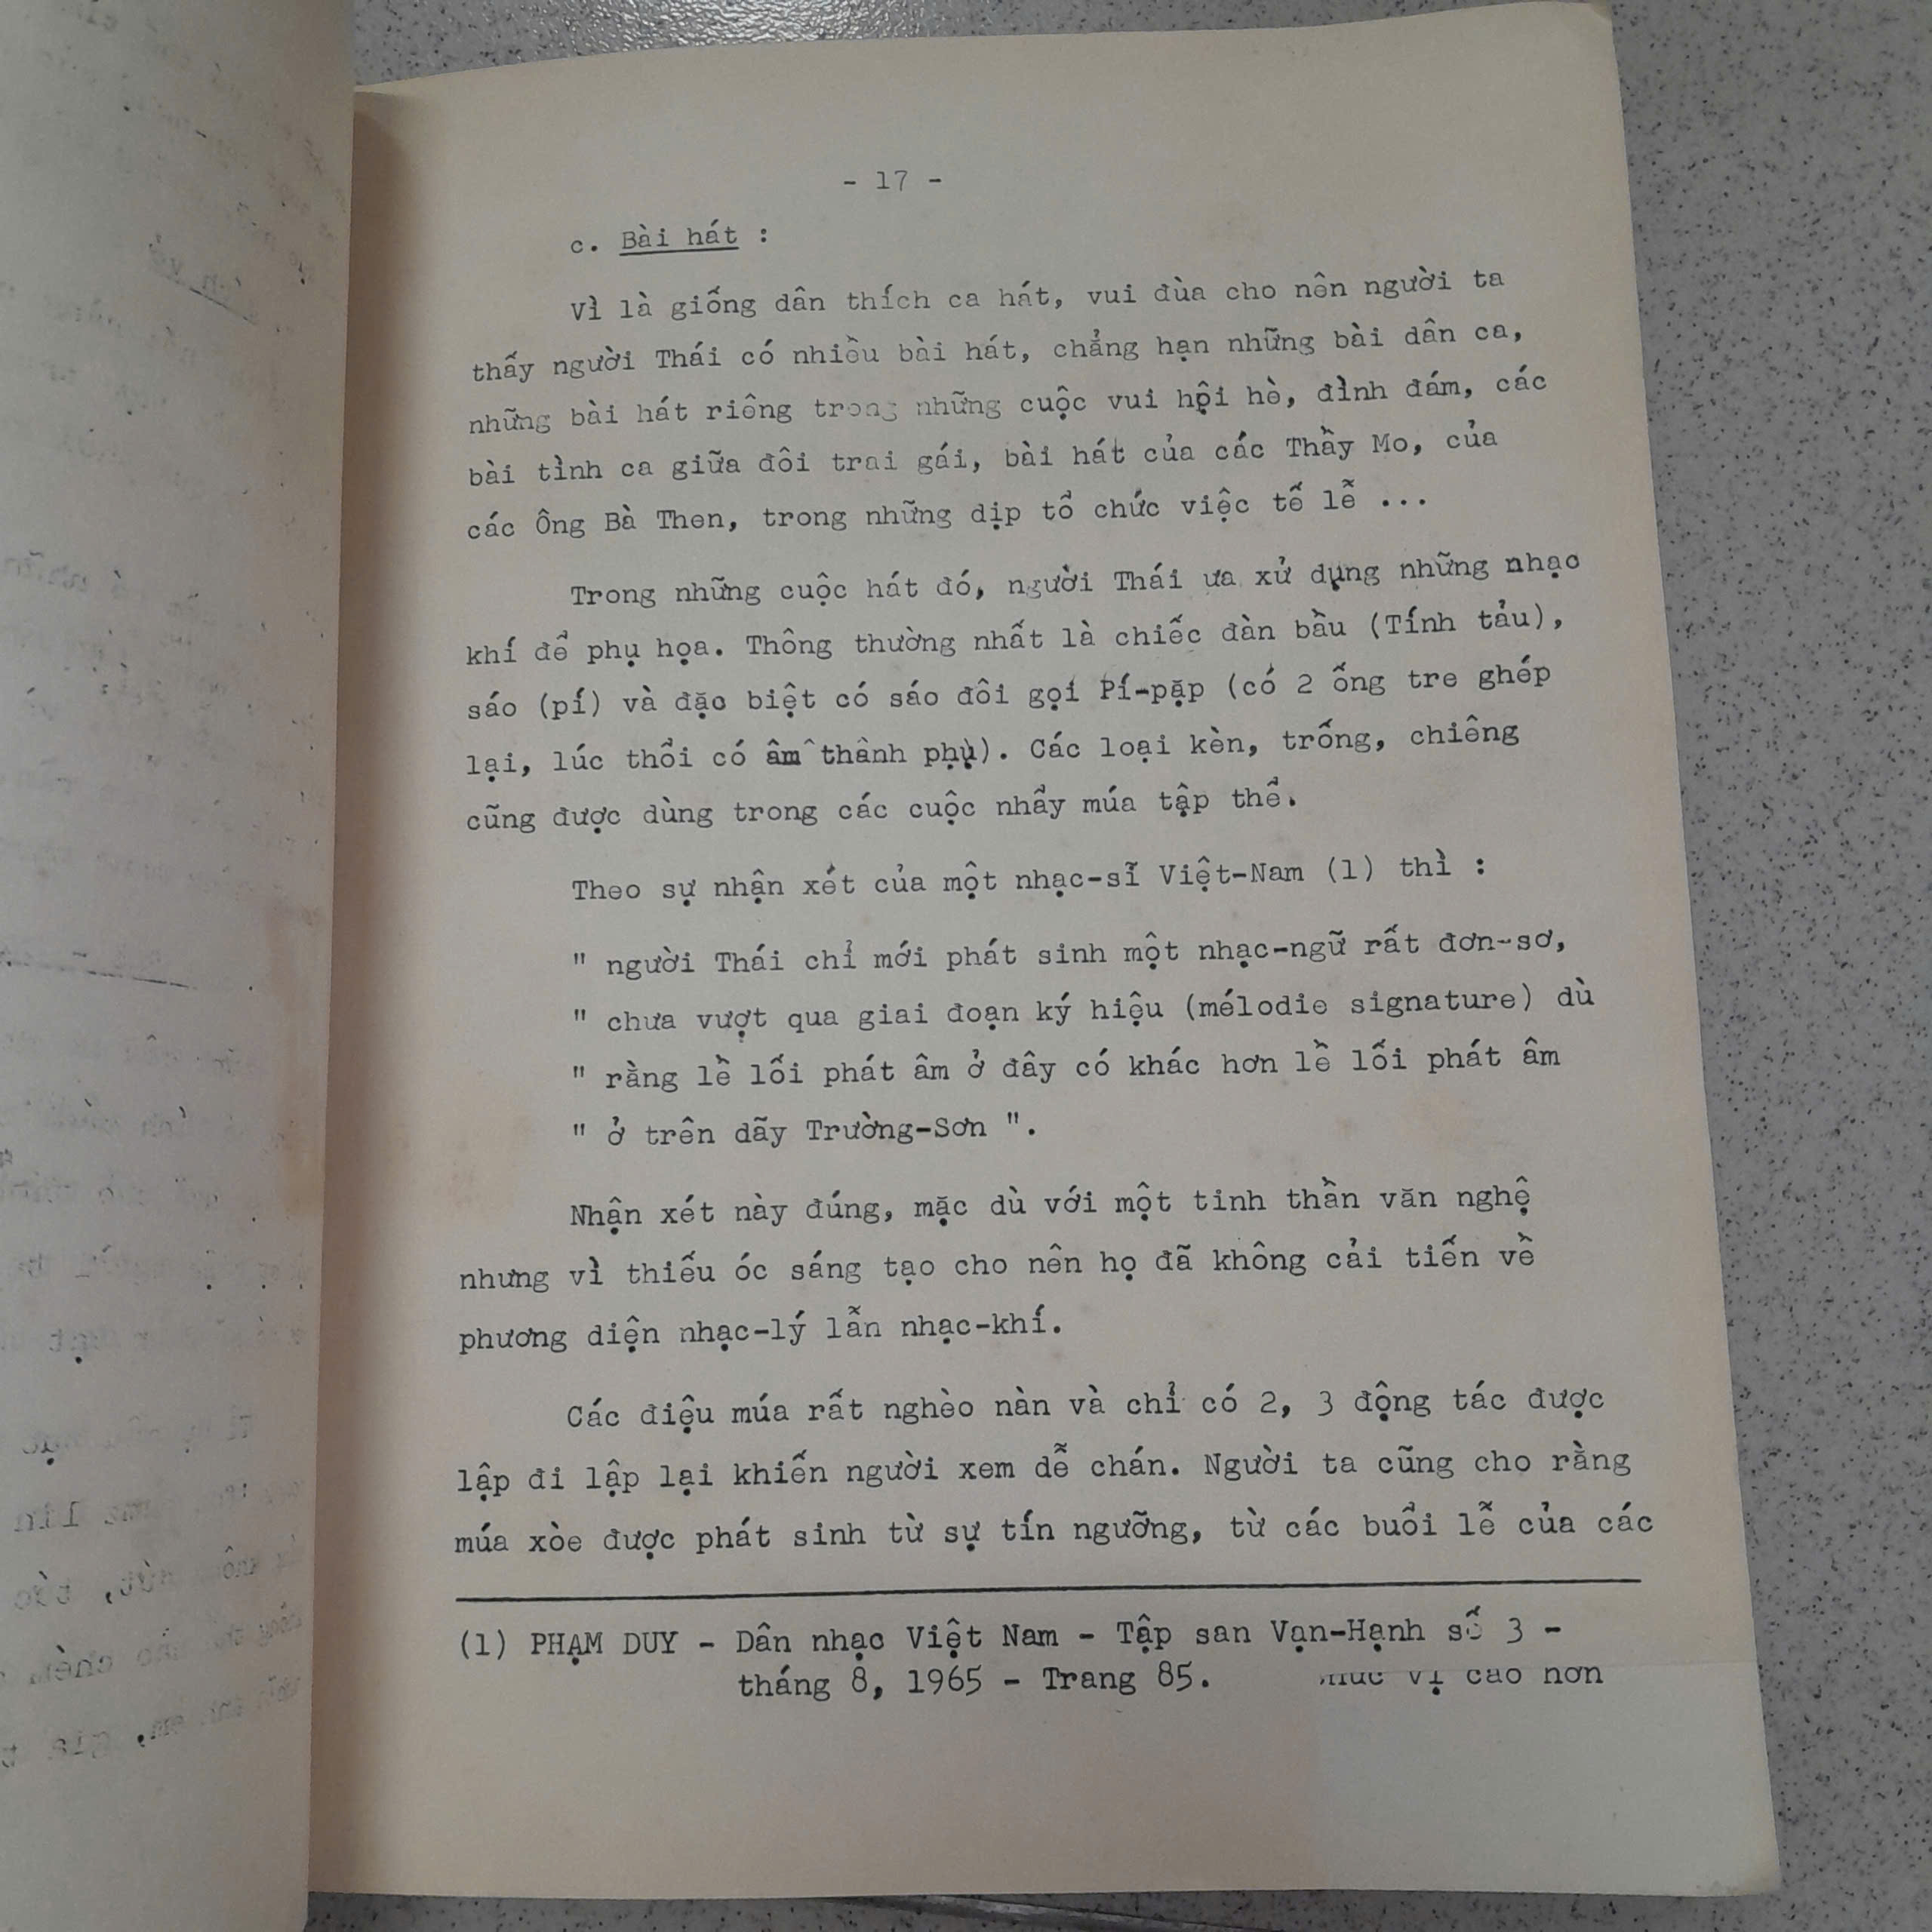 - 17 -
c. Bài hát :
Vì là giống dân thích ca hát, vui đùa cho nên người ta
thấy người Thái có nhiều bài hát, chẳng hạn những bài dân ca,
những bài hát riêng trong những cuộc vui hội hè, đình đám, các
bài tình ca giữa đôi trai gái, bài hát của các Thầy Mo, của
các Ông Bà Then, trong những dịp tổ chức việc tế lễ ...
Trong những cuộc hát đó, người Thái ưa xử dụng những nhạc
khí để phụ họa. Thông thường nhất là chiếc đàn bầu (Tính tẩu),
sáo (pí) và đặc biệt có sáo đôi gọi Pí-pặp (có 2 ống tre ghép
lại, lúc thổi có âm thành phụ). Các loại kèn, trống, chiêng
cũng được dùng trong các cuộc nhẩy múa tập thể.
Theo sự nhận xét của một nhạc-sĩ Việt-Nam (1) thì :
" người Thái chỉ mới phát sinh một nhạc-ngữ rất đơn-sơ,
" chưa vượt qua giai đoạn ký hiệu (mélodie signature) dù
" rằng lề lối phát âm ở đây có khác hơn lề lối phát âm
" ở trên dãy Trường-Sơn ".
Nhận xét này đúng, mặc dù với một tinh thần văn nghệ
nhưng vì thiếu óc sáng tạo cho nên họ đã không cải tiến về
phương diện nhạc-lý lẫn nhạc-khí.
Các điệu múa rất nghèo nàn và chỉ có 2, 3 động tác được
lập đi lập lại khiến người xem dễ chán. Người ta cũng cho rằng
múa xòe được phát sinh từ sự tín ngưỡng, từ các buổi lễ của các
(1) PHẠM DUY - Dân nhạc Việt Nam - Tập san Vạn-Hạnh số 3 -
tháng 8, 1965 - Trang 85. vị cao hơn